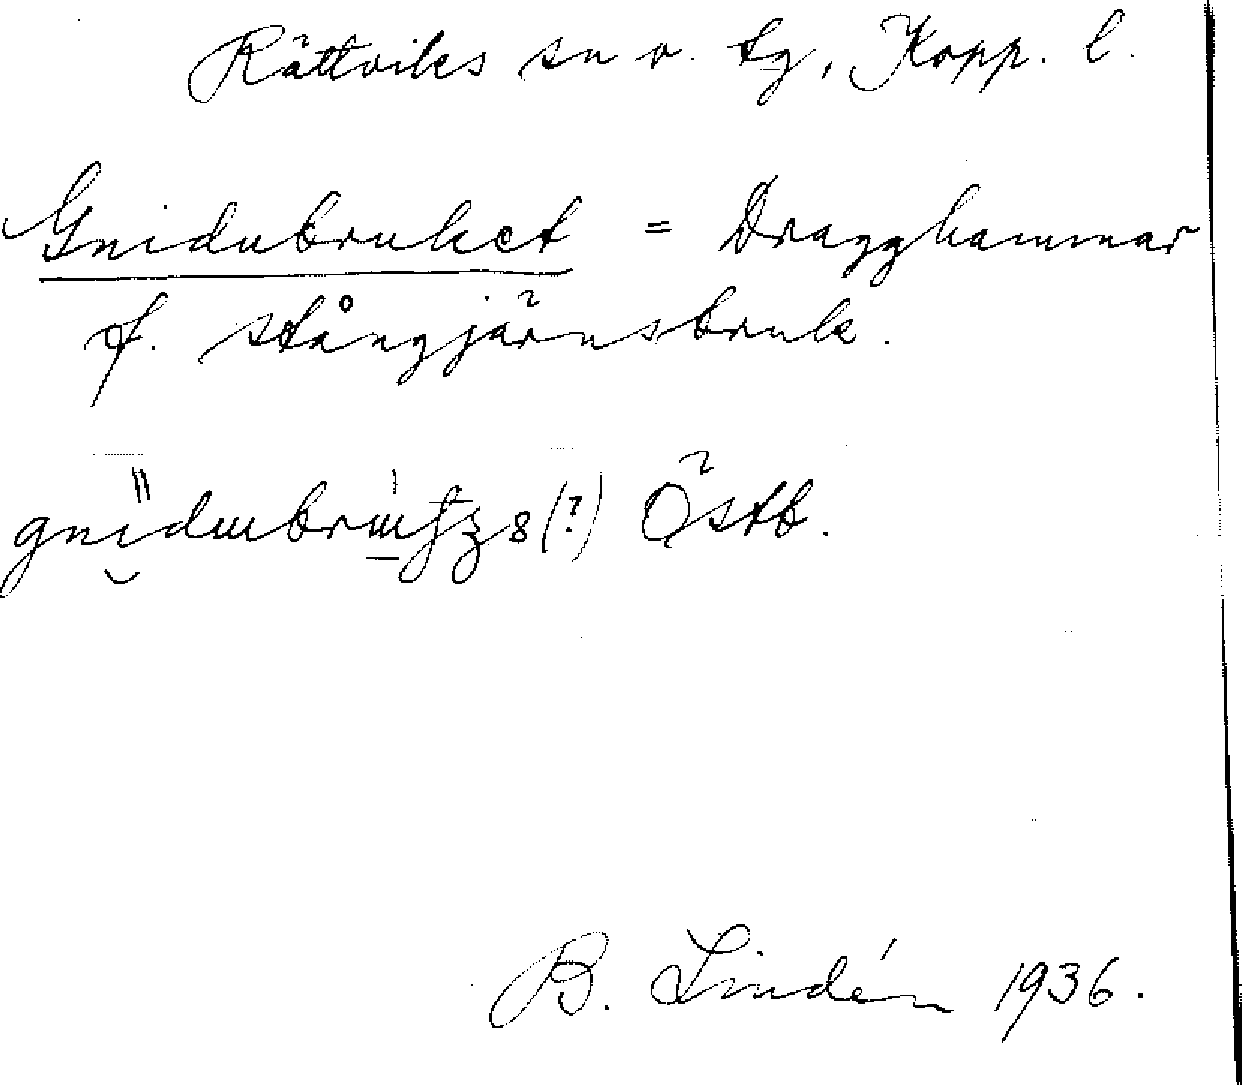 Rättviks sn o. tg, Kopp. l.
Gnidubruket = Dragghammar
f. stångjärnsbruk.
(?) Östb.
B. Lindén 1936.